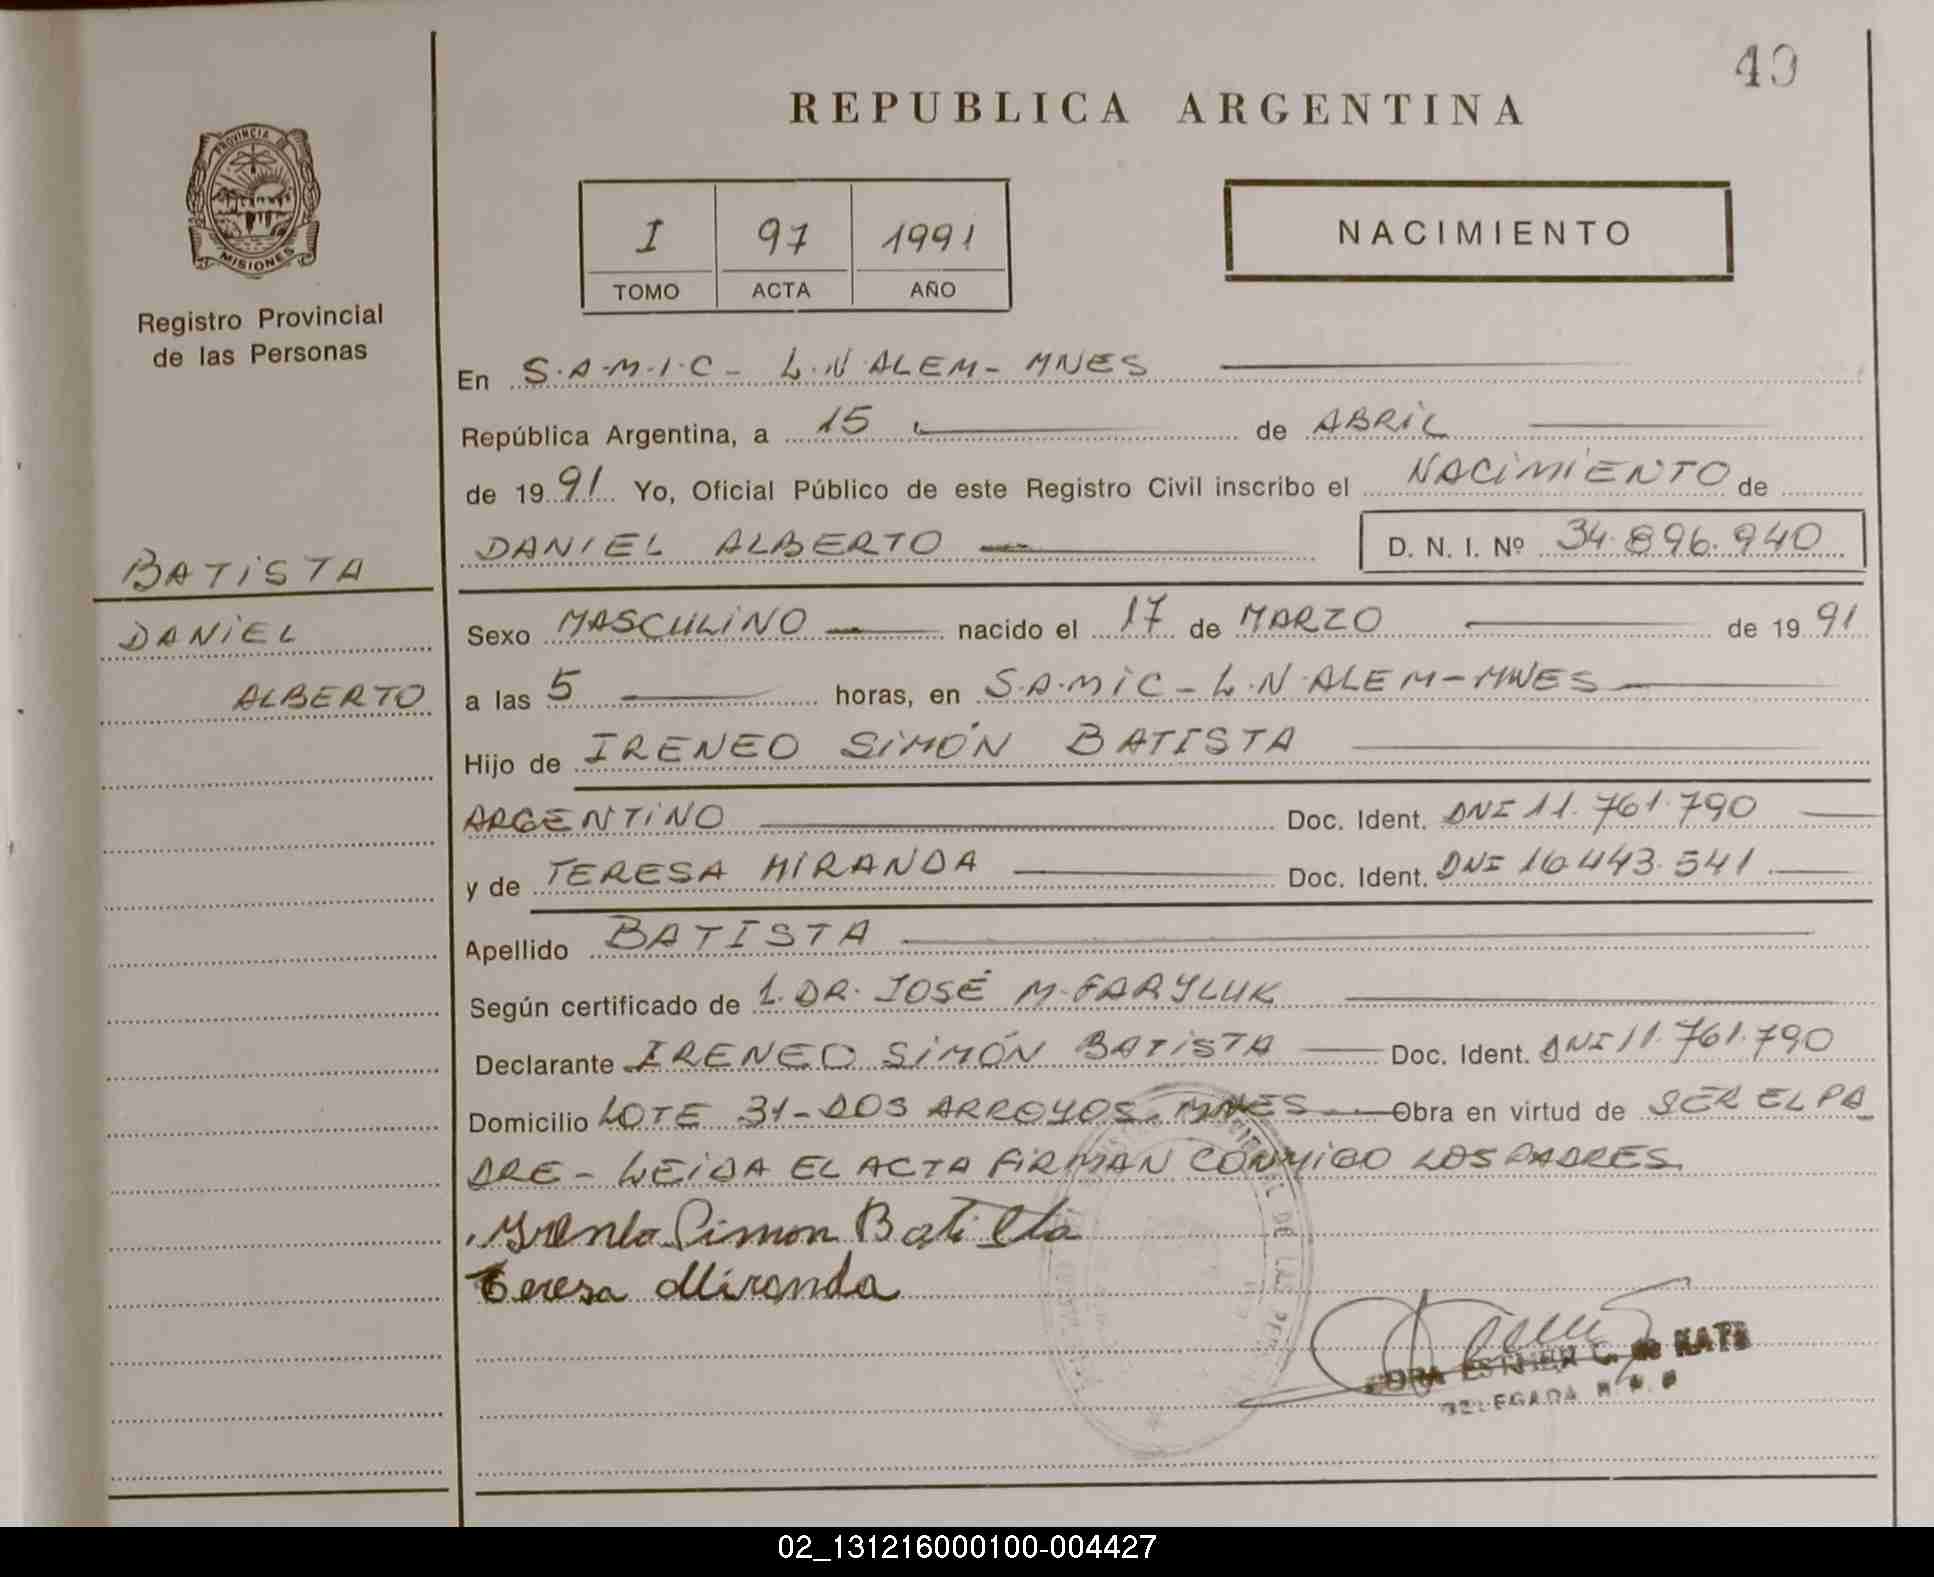 49
REPUBLICA ARGENTINA
PROVINCIA DE
MISIONES
Registro Provincial
de las Personas
I 97 1991
TOMO ACTA AÑO
NACIMIENTO
En S.A.M.I.C - L.N ALEM - MNES
República Argentina, a 15 de ABRIL
de 1991 Yo, Oficial Público de este Registro Civil inscribo el NACIMIENTO de
DANIEL ALBERTO D. N. I. Nº 34.896.940
BATISTA
DANIEL
ALBERTO
Sexo MASCULINO nacido el 17 de MARZO de 1991
a las 5 horas, en S.A.MIC - L.N.ALEM - MNES
Hijo de IRENEO SIMÓN BATISTA
ARGENTINO Doc. Ident. DNI 11.761.790
y de TERESA MIRANDA Doc. Ident. DNI 16.443.541
Apellido BATISTA
Según certificado de 1. DR. JOSÉ M. FARYLUK
Declarante IRENEO SIMÓN BATISTA Doc. Ident. DNI 11.761.790
Domicilio LOTE 31 - DOS ARROYOS. MNES Obra en virtud de SER EL PA
DRE - LEIDA EL ACTA FIRMAN CONMIGO LOS PADRES.
Simon Batista
Teresa Miranda
ESTHER C. de KATZ
DELEGADA R. P. P
02_131216000100-004427